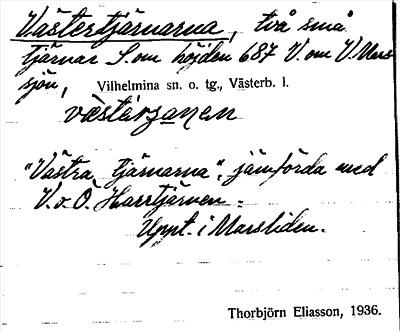 Västertjärnarna, två små
tjärnar S. om höjden 687 V. om V. Mars
sjön, Vilhelmina sn. o. tg., Västerb. l.
västerʒanen
"Västra tjärnarna", jämförda med
V. o. Ö. Harrtjärnen.
Uppt. i Marsliden.
Thorbjörn Eliasson, 1936.